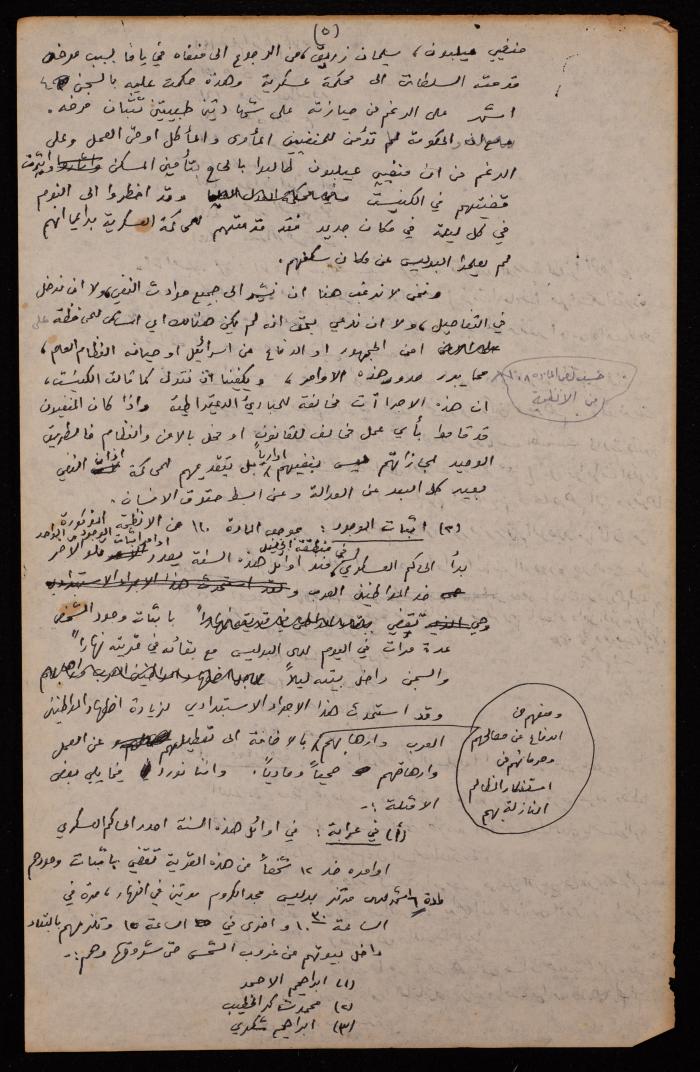 (٥)
منفيي عيلبون، سليمان زريق، من الرجوع الى منفاه في يافا بسبب مرضه
قدمته السلطات الى محكمة عسكرية وهذه حكمت عليه بالسجن ٤
اشهر على الرغم من حيازته على شهادتين طبيتين تثبتان مرضه.
الحكومة لم تؤمن للمنفيين المأوى والمأكل او حتى العمل وعلى
الرغم من ان منفيي عيلبون طالبوا بالحاح بتأمين المسكن
قضيتهم في الكنيست وقد اضطروا الى النوم
في كل ليلة في مكان جديد فقد قدمتهم للمحاكمة العسكرية بدعوى انهم
لم يعلموا البوليس عن مكان سكنهم.
ونحن لا نرغب هنا ان نشير الى جميع حوادث النفي، ولا ان ندخل
في التفاصيل، ولا ان ندعي بحق انه لم يكن هنالك اي اساس للمحافظة على
امن الجمهور او الدفاع عن اسرائيل او صيانة النظام العام،
حسب نص المادة ١٠٨
من الانظمة
مما يبرر صدور هذه الاوامر، ويكفينا ان نقول كما قالت الكنيست،
ان هذه الاجراءات مخالفة للمبادئ الديمقراطية واذا كان المنفيون
قد قاموا بأي عمل مخالف للقانون او مخل بالامن والنظام فالطريق
الوحيد لمجازاتهم ليس بنفيهم ادارياً بل بتقديمهم للمحاكمة النفي
بعيد كل البعد عن العدالة وعن ابسط حقوق الانسان.
(٣) اثبات الوجود: بموجب المادة ١١٠ من الانظمة المذكورة
بدأ الحاكم العسكري في منطقة الجليل منذ اوائل هذه السنة يصدر اوامر اثبات الوجود
ضد المواطنين العرب
وهي تقضي باثبات وجود الشخص
عدة مرات في اليوم لدى البوليس مع بقائه في قريته نهاراً
والسجن داخل بيته ليلاً
وقد استحدث هذا الاجراء الاستبدادي لزيادة اضطهاد المواطنين
العرب وارهابهم بالاضافة الى تعطيلهم عن العمل
وارهاقهم صحياً ومادياً. واننا نورد فيما يلي بعض
الامثلة:-
ومنعهم من
الدفاع عن مصالحهم
وحرمانهم من
استنكار المظالم
النازلة بهم
(أ) في عرابة: في اوائل هذه السنة اصدر الحاكم العسكري
اوامره ضد ١٢ شخصاً من هذه القرية تقضي باثبات وجودهم
لمدة ٦ اشهر لدى مركز بوليس مجد الكروم مرتين في النهار، مرة في
الساعة ١٠.٣٠ واخرى في الساعة ١٥ وتلزمهم بالبقاء
داخل بيوتهم من غروب الشمس حتى شروقها وهم:-
(١) ابراهيم الاحمد
(٢) محمد شاكر الخطيب
(٣) ابراهيم شكري